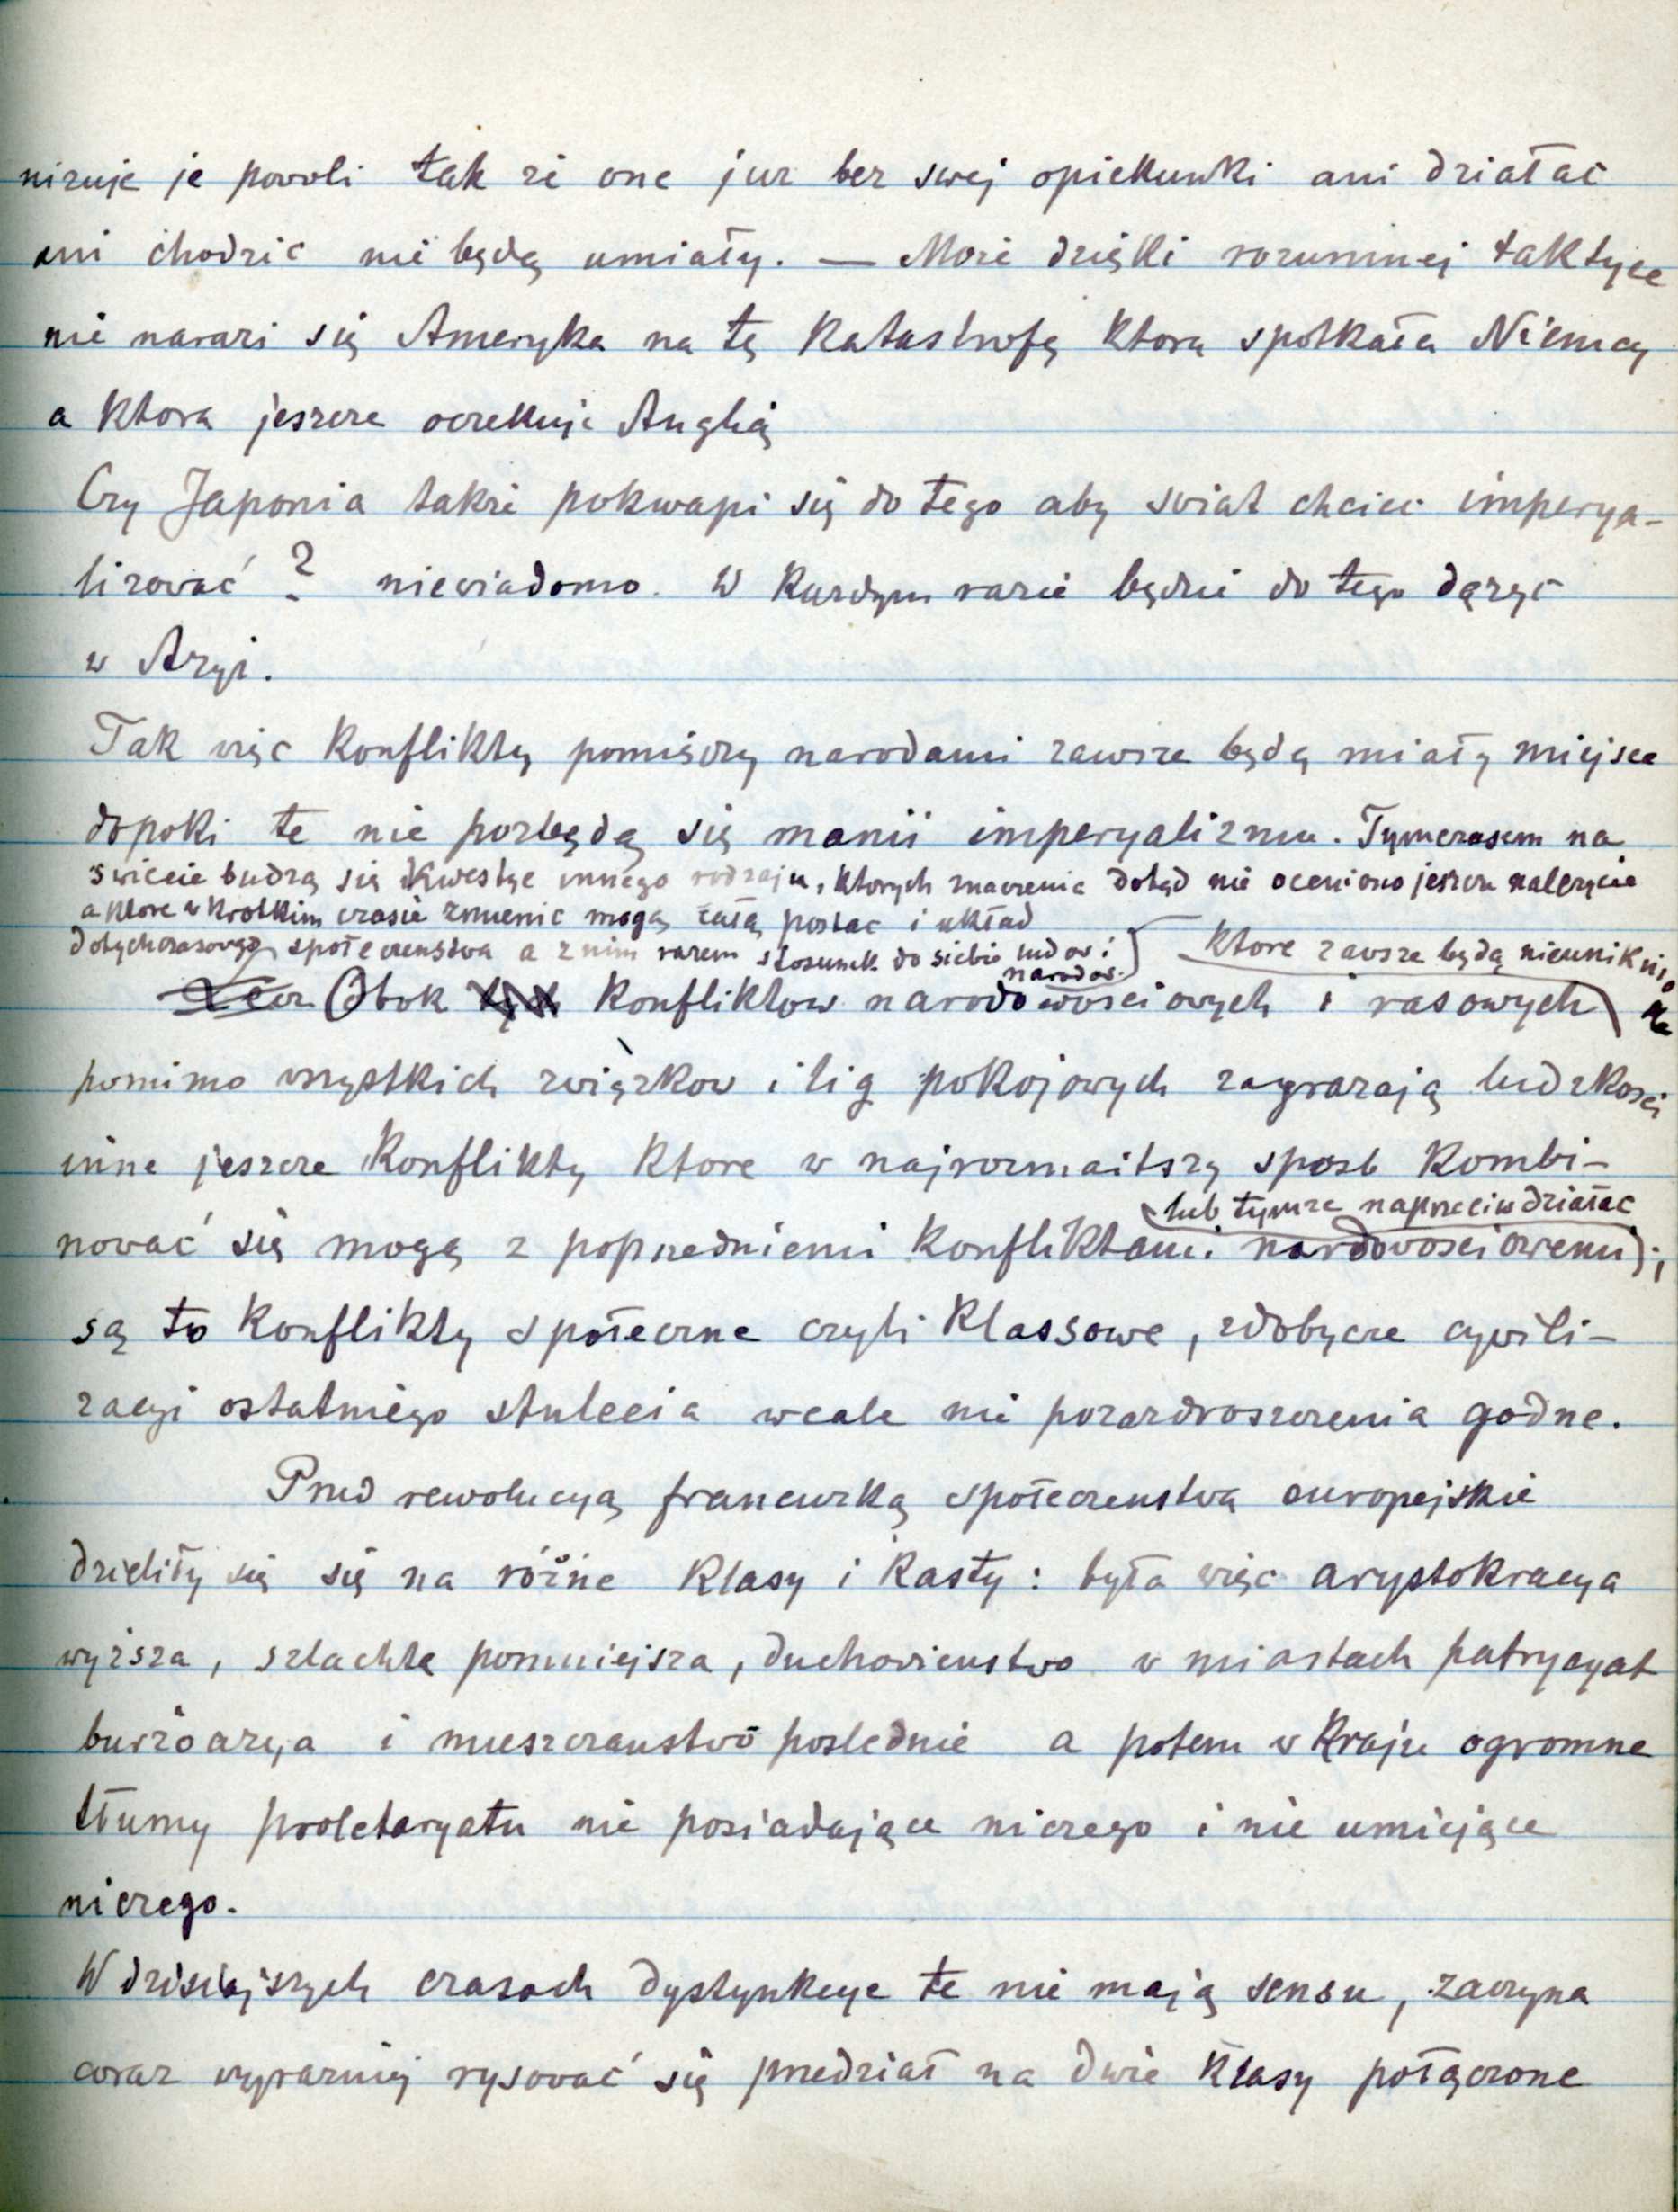 nizuje je powoli tak że one już bez swej opiekunki ani działac
ani chodzic nie będą umiały. — Może dzięki rozumnej taktyce
nie narazi się Ameryka na tę katastrofę ktora spotkała Niemcy
a ktora jeszcze oczekuje Anglię
Czy Japonia takze pokwapi się do tego aby swiat chciec imperya-
lizować ? niewiadomo. W kazdym razie będzie do tego dązyc
w Azyi.
Tak więc konflikty pomiędzy narodami zawsze będą miały miejsce
dopoki te nie pozbędą się manii imperyalizmu. Tymczasem na
swiecie budzą się kwestye innego rodzaju, ktorych znaczenia dotąd nie oceniono jeszcze nalezycie
a ktore w krotkim czasie zmienic mogą całą postac i układ
dotychczasowego społeczenstwa a z nim razem stosunek do siebie ludow i
narodow.
ktore zawsze będą nieuniknio
ne
Lecz Obok tych konfliktow narodowosciowych i rasowych
pomimo wszystkich związkow i lig pokojowych zagrazają ludzkosci
inne jeszcze konflikty ktore w najrozmaitszy sposb kombi-
lub tymze naprzeciwdziałac
nować się mogą z poprzedniemi konfliktami narodowosciowemi;
są to konflikty społeczne czyli klassowe, zdobycze cywili-
zacyi ostatniego stulecia wcale nie pozazdroszczenia godne.
Przed rewolucyą francuzką społeczenstwa europejskie
dzieliły się się na różne klasy i kasty: była więc arystokracya
wyższa, szlachta pomniejsza, duchowienstwo w miastach patrycyat
burżoazya i mieszczanstwo poslednie a potem w kraju ogromne
tłumy proletaryatu nie posiadające niczego i nie umiejące
niczego.
W dzisiejszych czasach dystynkcye te nie mają sensu, zaczyna
coraz wyrazniej rysować się przedział na dwie klasy połączone